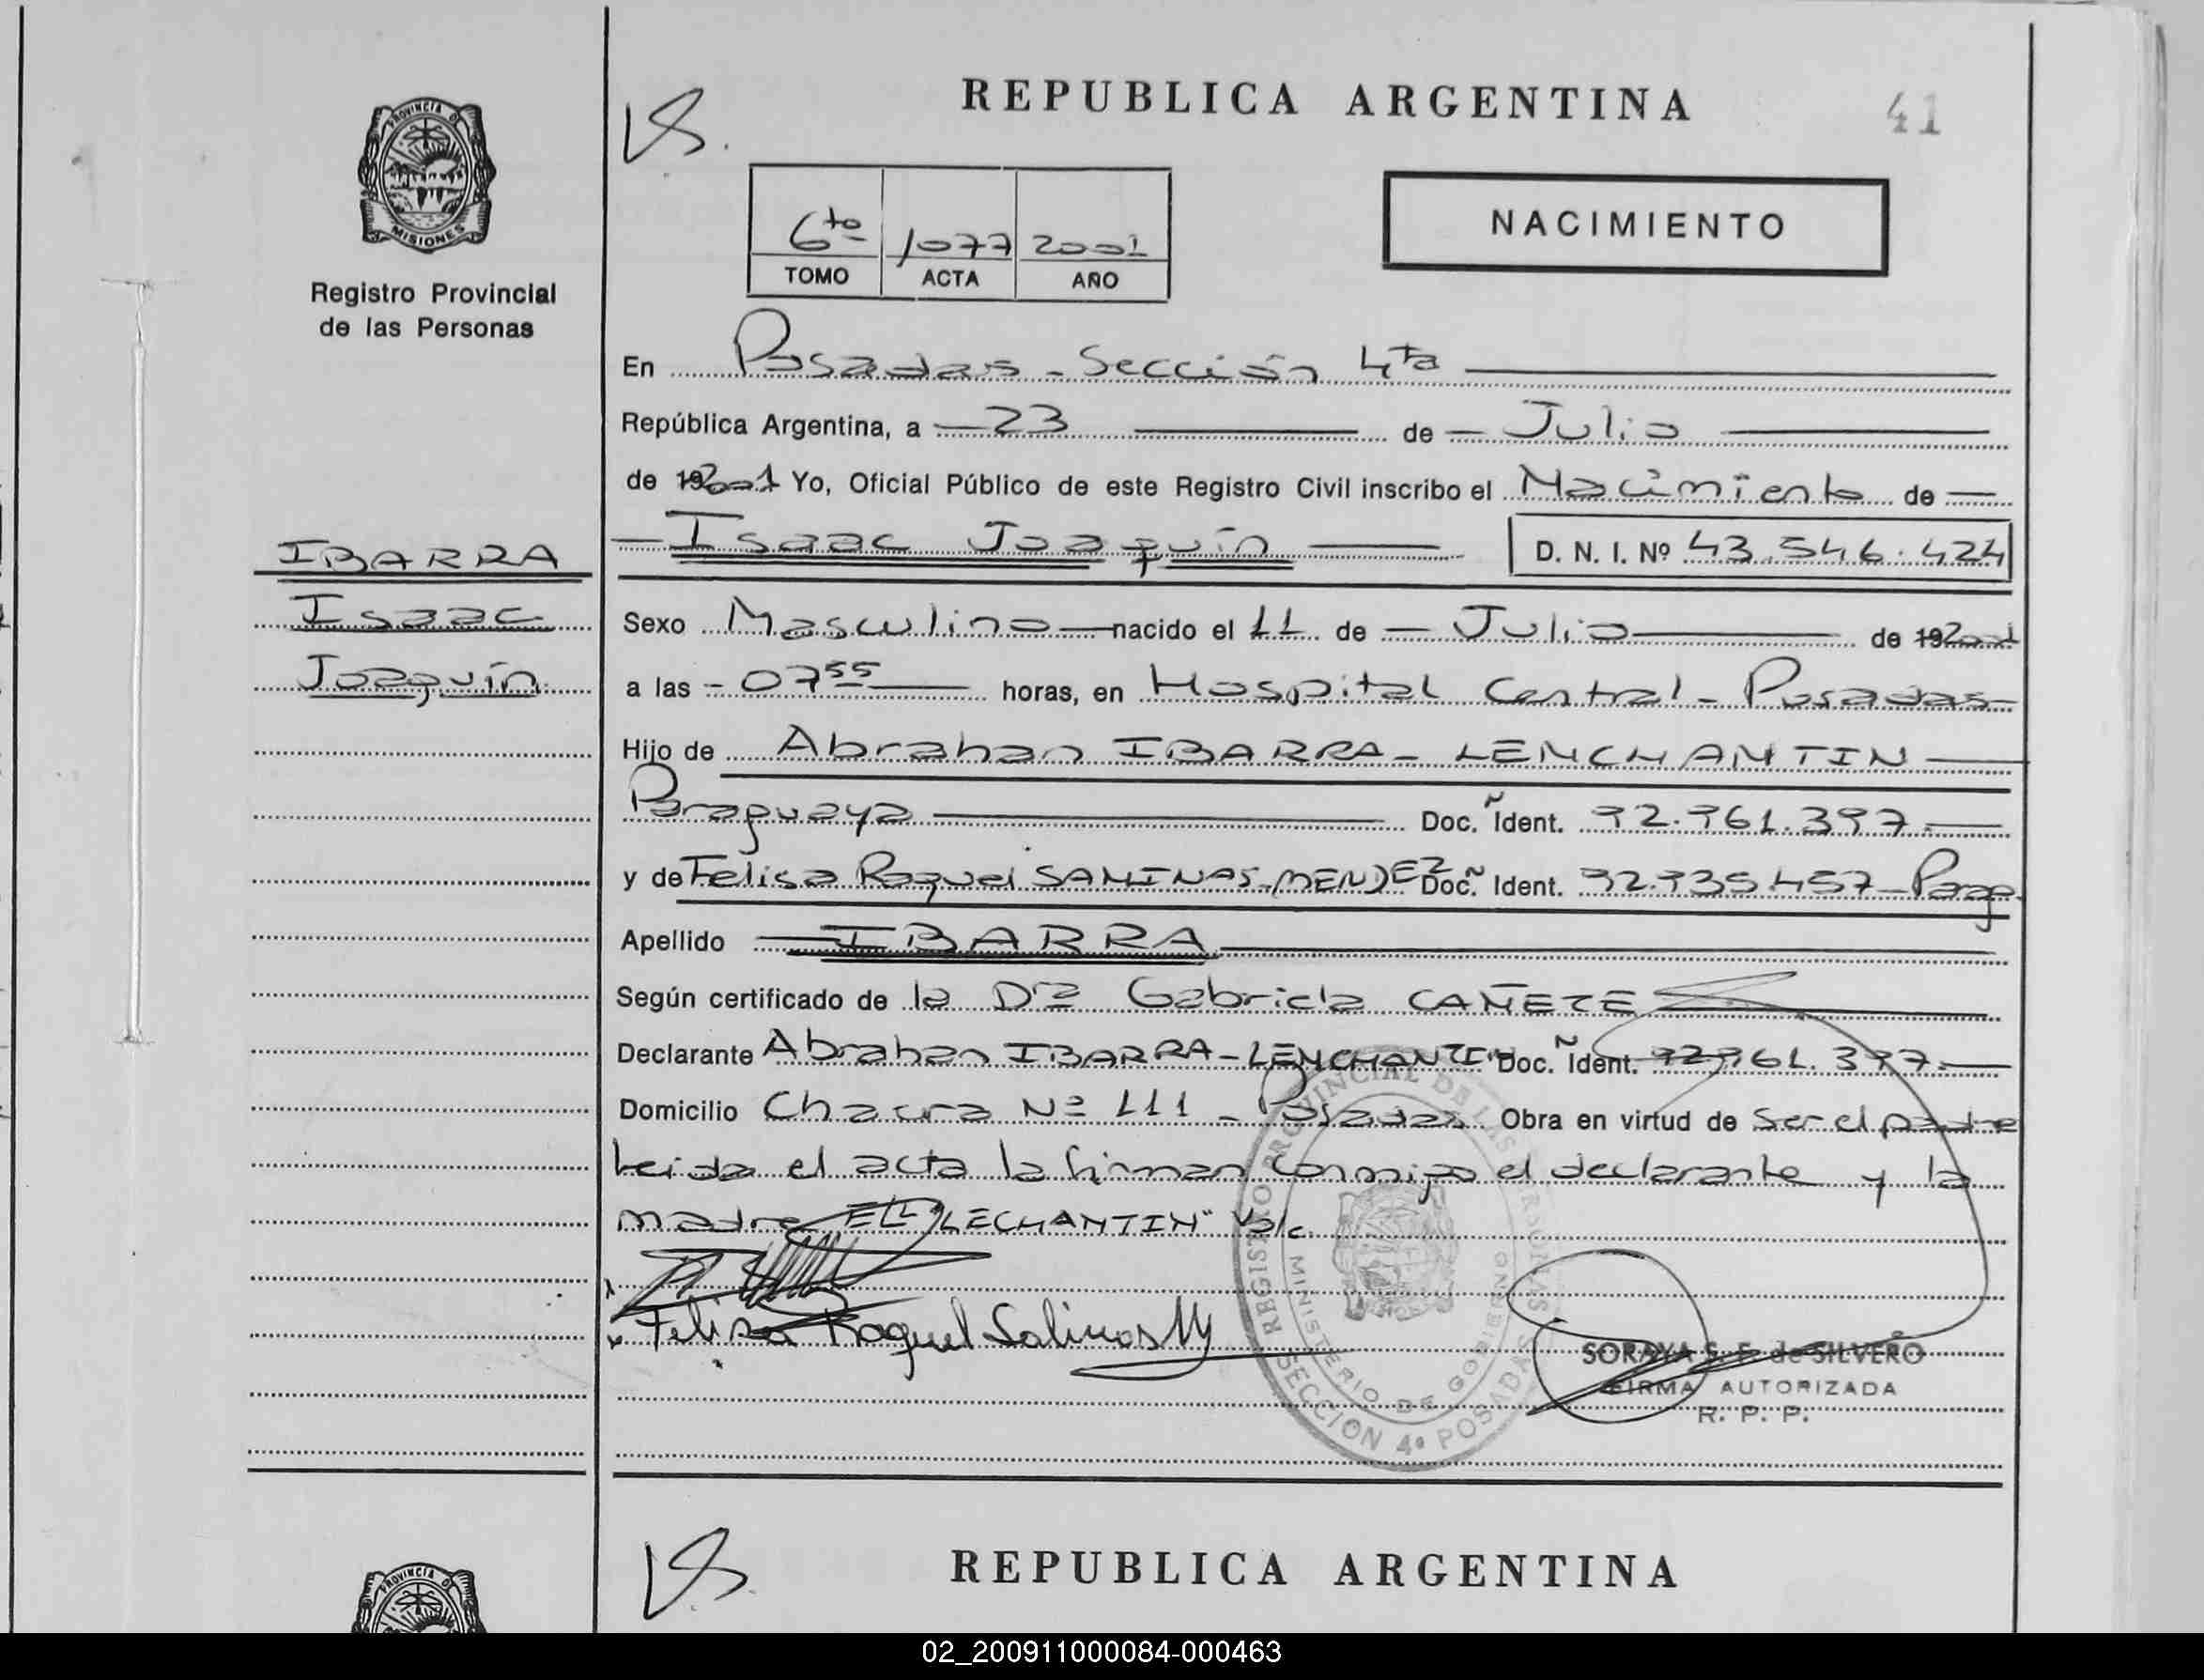 REPUBLICA ARGENTINA
41
PROVINCIA D
MISIONES
Registro Provincial
de las Personas
6to 1077 2001
TOMO ACTA AÑO
NACIMIENTO
En Posadas - Sección 4ta
República Argentina, a 23 de Julio
de 192001 Yo, Oficial Público de este Registro Civil inscribo el Nacimiento de
Isaac Joaquín D. N. I. Nº 43.546.424
IBARRA
Isaac
Joaquín
Sexo Masculino nacido el 11 de Julio de 192001
a las 07 55 horas, en Hospital Central - Posadas
Hijo de Abrahan IBARRA - LENCHANTIN
Paraguaya Doc. Ident. 92.961.397.
y de Felisa Raquel SALINAS - MENDEZ Doc. Ident. 92.935.457 - Parag.
Apellido IBARRA
Según certificado de la Dra Gabriela CAÑETE
Declarante Abrahan IBARRA - LENCHANTIN Doc. Ident. 92.961.397.
Domicilio Chacra Nº 111 - Posadas Obra en virtud de ser el padre
Leida el acta la firman conmigo el declarante y la
madre. "LECHANTIN" Vale.
Felisa Raquel Salinas M
REGISTRO PROVINCIAL DE LAS PERSONAS
MINISTERIO DE GOBIERNO
SECCION 4ª POSADAS
SORAYA S. F. de SILVERO
FIRMA AUTORIZADA
R. P. P.
REPUBLICA ARGENTINA
PROVINCIA D
02_200911000084-000463